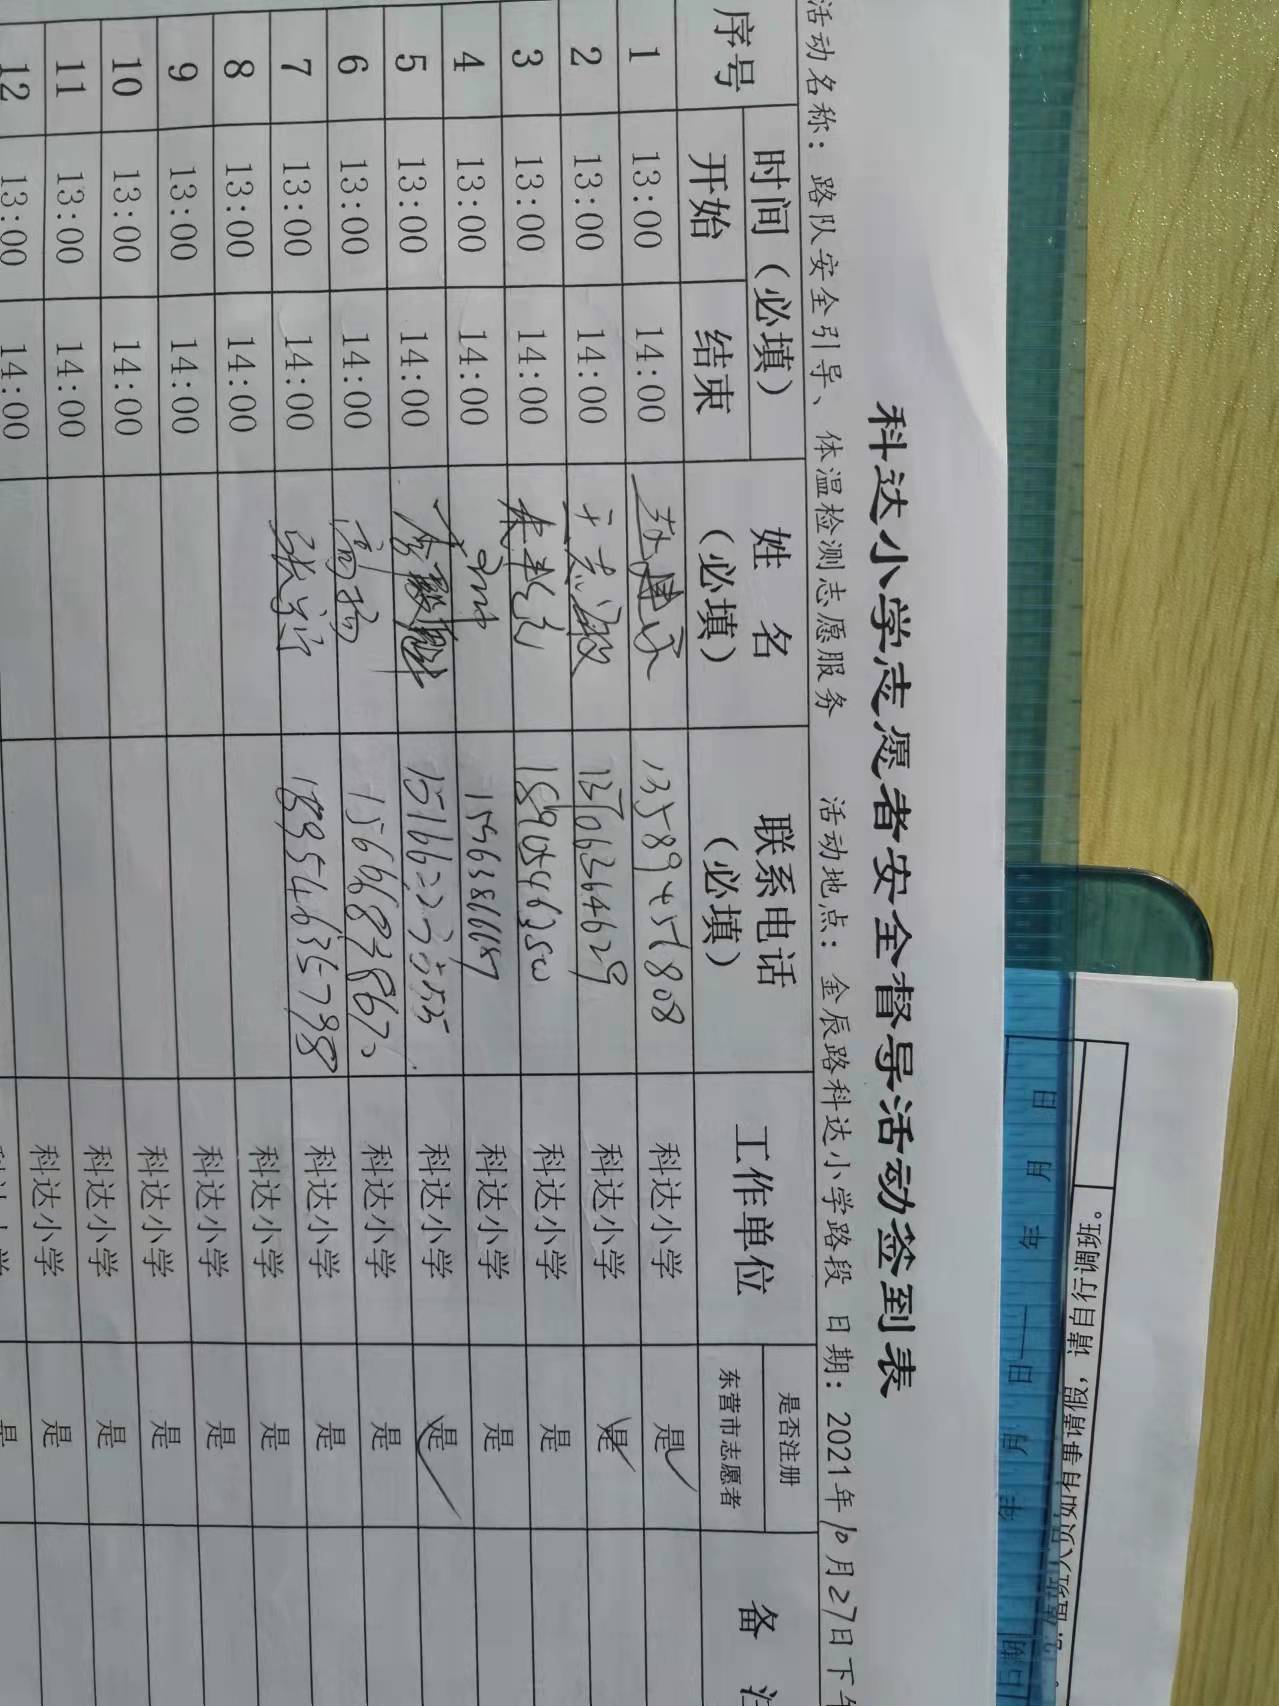 科达小学志愿者安全督导活动签到表
活动名称：路队安全引导、体温检测志愿服务 活动地点：金辰路科达小学路段 日期：2021年10月27日下午
序号 时间（必填） 姓名（必填） 联系电话（必填） 工作单位 是否注册东营市志愿者 备注
开始 结束
1 13:00 14:00 13589456808 科达小学 是
2 13:00 14:00 于志敏 13706364629 科达小学 是
3 13:00 14:00 18905463500 科达小学 是
4 13:00 14:00 15563816687 科达小学 是
5 13:00 14:00 科达小学 是
6 13:00 14:00 高杨 科达小学 是
7 13:00 14:00 张宁 18954635798 科达小学 是
8 13:00 14:00 科达小学 是
9 13:00 14:00 科达小学 是
10 13:00 14:00 科达小学 是
11 13:00 14:00 科达小学 是
12 13:00 14:00 科达小学 是
年 月 日——年 月 日
值班人员如有事请假，请自行调班。